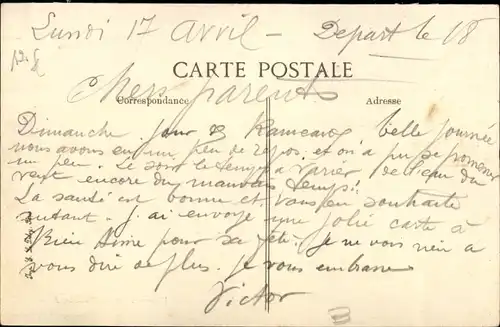 Lundi 17 Avril - Départ le 18
CARTE POSTALE
Chers parents
Correspondance
Adresse
Dimanche jour de Rameaux belle journée
nous avons eu un peu de repos et on a pu se promener
un peu. Le soir le temps a varier
vent encore du mauvais temps.
La santé est bonne et vous en souhaite
autant. j'ai envoyé une jolie carte à
Bien Aimé pour sa fête. je ne vois rien a
vous dire de plus. je vous embrasse
Victor